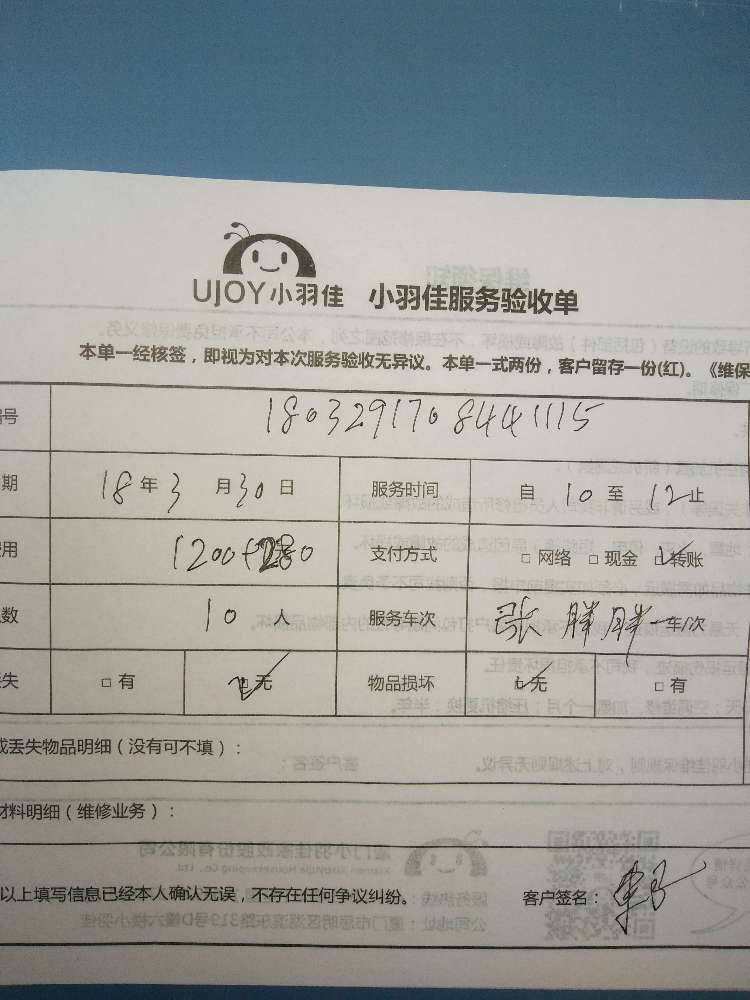 UJOY小羽佳 小羽佳服务验收单
本单一经核签，即视为对本次服务验收无异议。本单一式两份，客户留存一份(红)。《维保
号 180329170844 1115
期 18年3月30日 服务时间 自10至12止
用 1200+280 支付方式 □网络 □现金 □转账
数 10人 服务车次 张胜胜一车/次
失 □有 □无 物品损坏 □无 □有
或丢失物品明细（没有可不填）：
材料明细（维修业务）：
以上填写信息已经本人确认无误，不存在任何争议纠纷。 客户签名：